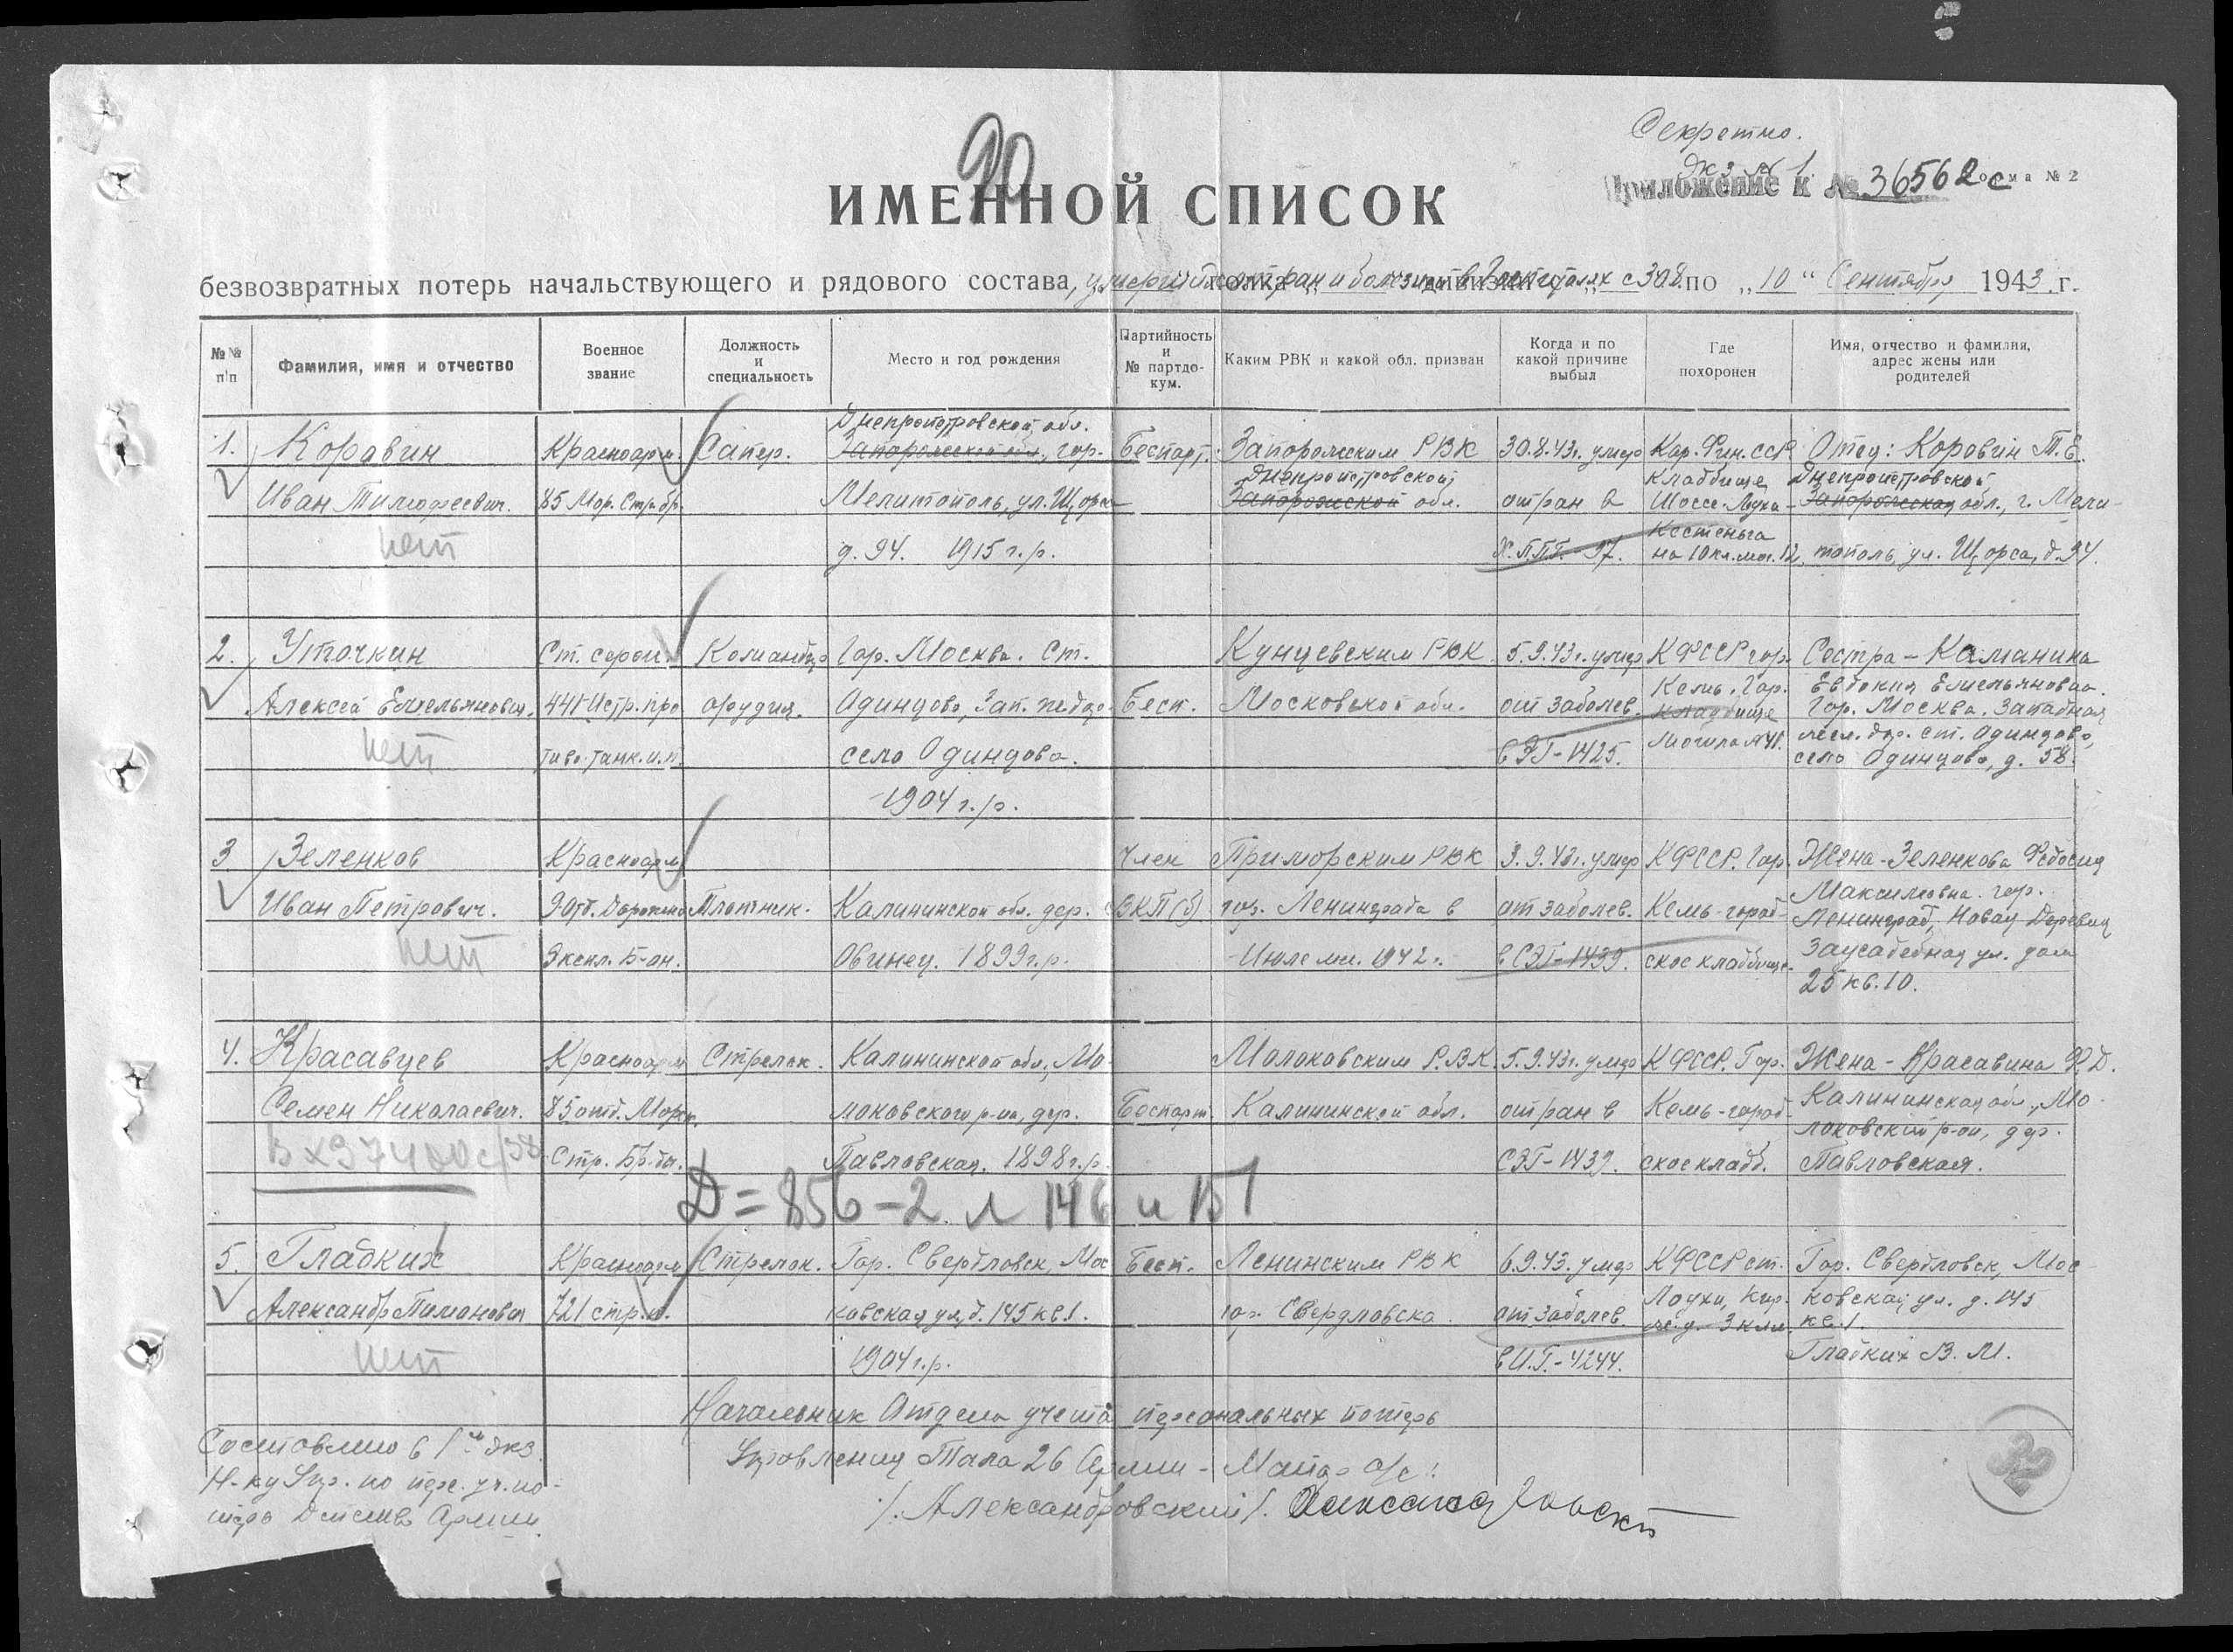 Секретно.
Экз № 1.
90
Приложение к № 36562с
Форма № 2
ИМЕННОЙ СПИСОК
безвозвратных потерь начальствующего и рядового состава, умерший от ран и болезни в Госпиталях с 30.8 по „10“ Сентября 1943 г.
№№ п/п
Фамилия, имя и отчество
Военное звание
Должность и специальность
Место и год рождения
Партийность и № партдокум.
Каким РВК и какой обл. призван
Когда и по какой причине выбыл
Где похоронен
Имя, отчество и фамилия, адрес жены или родителей
Днепропетровской обл.
1. Коровин Красноарм. Сапер. Запорожской обл., гор. Беспарт. Запорожским РВК 30.8.43г. умер Кар. Фин. ССР Отец: Коровин Т.Е.
Днепропетровской кладбище Днепропетровской
Иван Тимофеевич. 85 Мор. Стр. бр. Мелитополь, ул. Щорса Запорожской обл. от ран в Шоссе-Лоухи- Запорожская обл., г. Мели-
нет д. 94. 1915 г.р. Х.ППГ-97. Кестеньга на 10 кл. мог. 12, тополь, ул. Щорса, д. 94.
2. Уточкин Ст. серж. Командир Гор. Москва. Ст. Кунцевским РВК 5.9.43г. умер КФССР гор. Сестра - Каманина
Алексей Емельянович. 441 Истр. про орудия. Одинцово, Зап. жел. дор. Бесп. Московской обл. от заболев. Кемь. Гор. кладбище Евдокия Емельяновна. Гор. Москва. Западная
нет тиво. танк. и.п. село Одинцово. в ЭГ-1425. Могила №41. жел. дор. ст. Одинцово, село Одинцово, д. 58.
1904 г.р.
3 Зеленков Красноарм Член Приморским РВК 3.9.43г. умер КФССР. Гор. Жена-Зеленкова Федосия
Иван Петрович. 9 отд. Дорожно Плотник. Калининской обл. дер. ВКП(б) гор. Ленинграда в от заболев. Кемь-город- Максимовна. гор. Ленинград, Новая Деревня
нет Экспл. Б-он. Овинец. 1899 г.р. Июле м-ц. 1942 г. в СЭГ-1439. ское кладбище. Заусадебная ул. дом
25 кв. 10.
4. Красавцев Красноарм Стрелок. Калининской обл., Мо- Молоковским Р.В.К. 5.9.43г. умер КФССР. Гор. Жена - Красавина Ф.Д.
Семен Николаевич. 85 отд. Морск. локовского р-на, дер. Беспарт. Калининской обл. от ран в Кемь-город- Калининская обл., Мо-
локовский р-он, дер.
Стр. Бр-ды. Павловская. 1898 г.р. СЭГ-1439. ское кладб. Павловская.
Д=856-2 л 146 и 151
5. Гладких Красноарм Стрелок. Гор. Свердловск, Мос Бесп. Ленинским РВК 6.9.43. умер КФССР ст. Гор. Свердловск, Мос-
Александр Пимонович 721 стр. п. ковская ул. д. 145 кв. 1. гор. Свердловска от заболев. Лоухи, Кир. ж.д. 3 клм. ковская ул. д. 145 кв. 1.
нет 1904 г.р. в И.Г.-4244. Гладких В. М.
Начальник Отдела учета персональных потерь
Управления Тыла 26 Армии - Майор а/с:
/. Александровский/.
Составлено в 1м экз.
Н-ку Упр. по перс. уч. по-
терь Действ Армии.
32